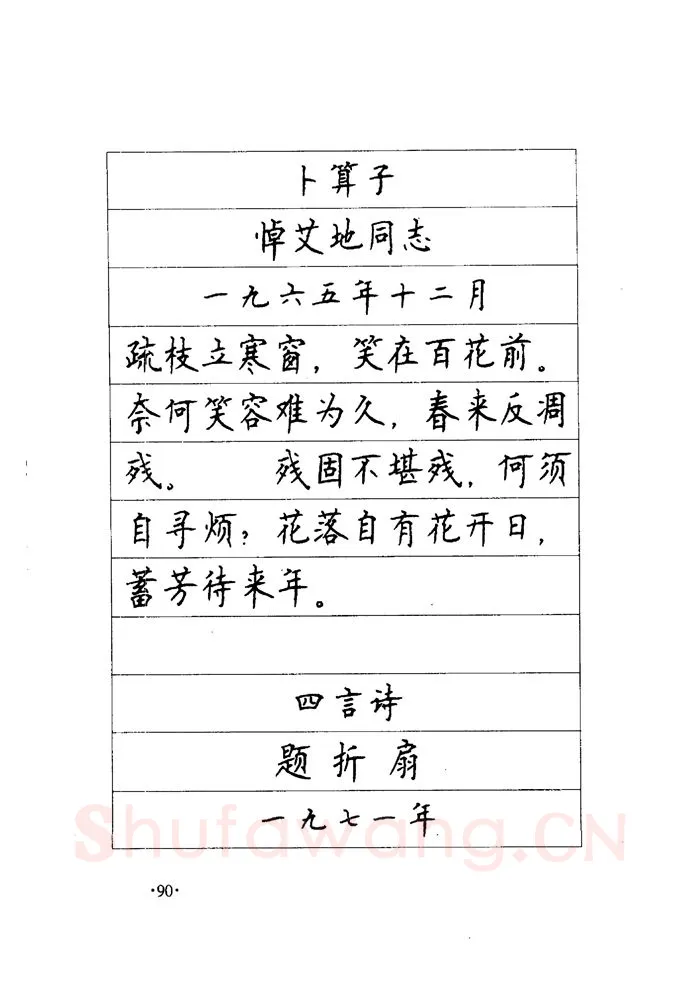 卜算子
悼艾地同志
一九六五年十二月
疏枝立寒窗，笑在百花前。
奈何笑容难为久，春来反凋
残。 残固不堪残，何须
自寻烦？花落自有花开日，
蓄芳待来年。
四言诗
题折扇
一九七一年
Shufawang.CN
·90·